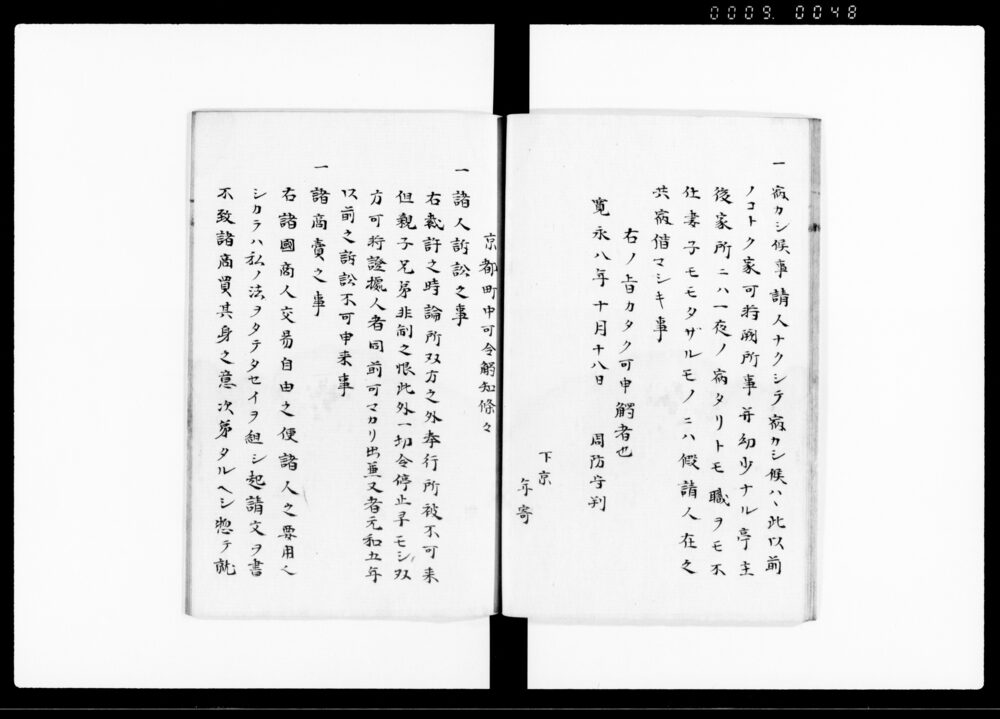 0009. 0048
一 宿カシ候事請人ナクシテ宿カシ候ハヽ此以前
ノコトク家可為闕所事并幼少ナル亭主
後家所ニハ一夜ノ宿タリトモ職ヲモ不
仕妻子モモタザルモノニハ假請人在之
共宿借マシキ事
右ノ旨カタク可申觸者也
寛永八年十月十八日 周防守判
下京
年寄
京都町中可令觸知條々
一 諸人訴訟之事
右裁許之時論所双方之外奉行所被不可来
但親子兄弟非制之限此外一切令停止畢モシ双
方可為證據人者同前可マカリ出兼又者元和五年
以前之訴訟不可申来事
一 諸商賣之事
右諸國商人交易自由之便諸人之要用也
シカラハ私ノ法ヲタテタセイヲ組シ起請文ヲ書
不致諸商買其身之意次第タルヘシ惣テ就